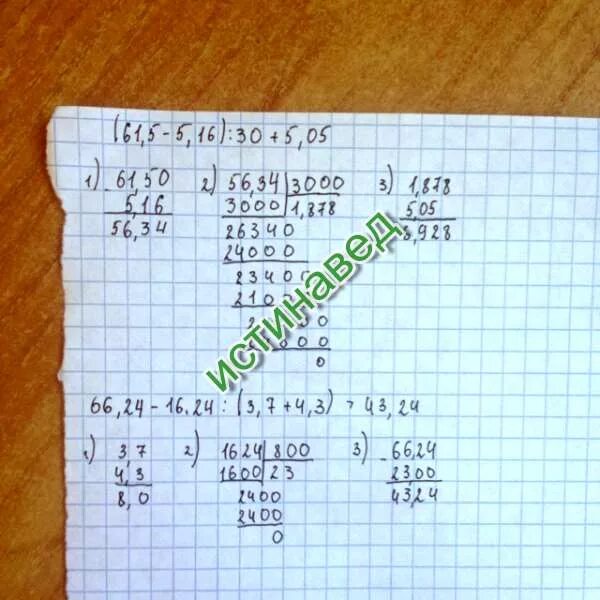 (61,5-5,16):30+5,05
1) 61,50 2) 56,34 3000 3) 1,878
- 5,16 3000 1,878 5,05
56,34 26340 6,928
24000
23400
0
истинавед
66,24-16.24:(3,7+4,3) = 43,24
1) 3,7 2) 1624 800 3) -66,24
4,3 1600 23 23,00
8,0 2400 43,24
2400
0